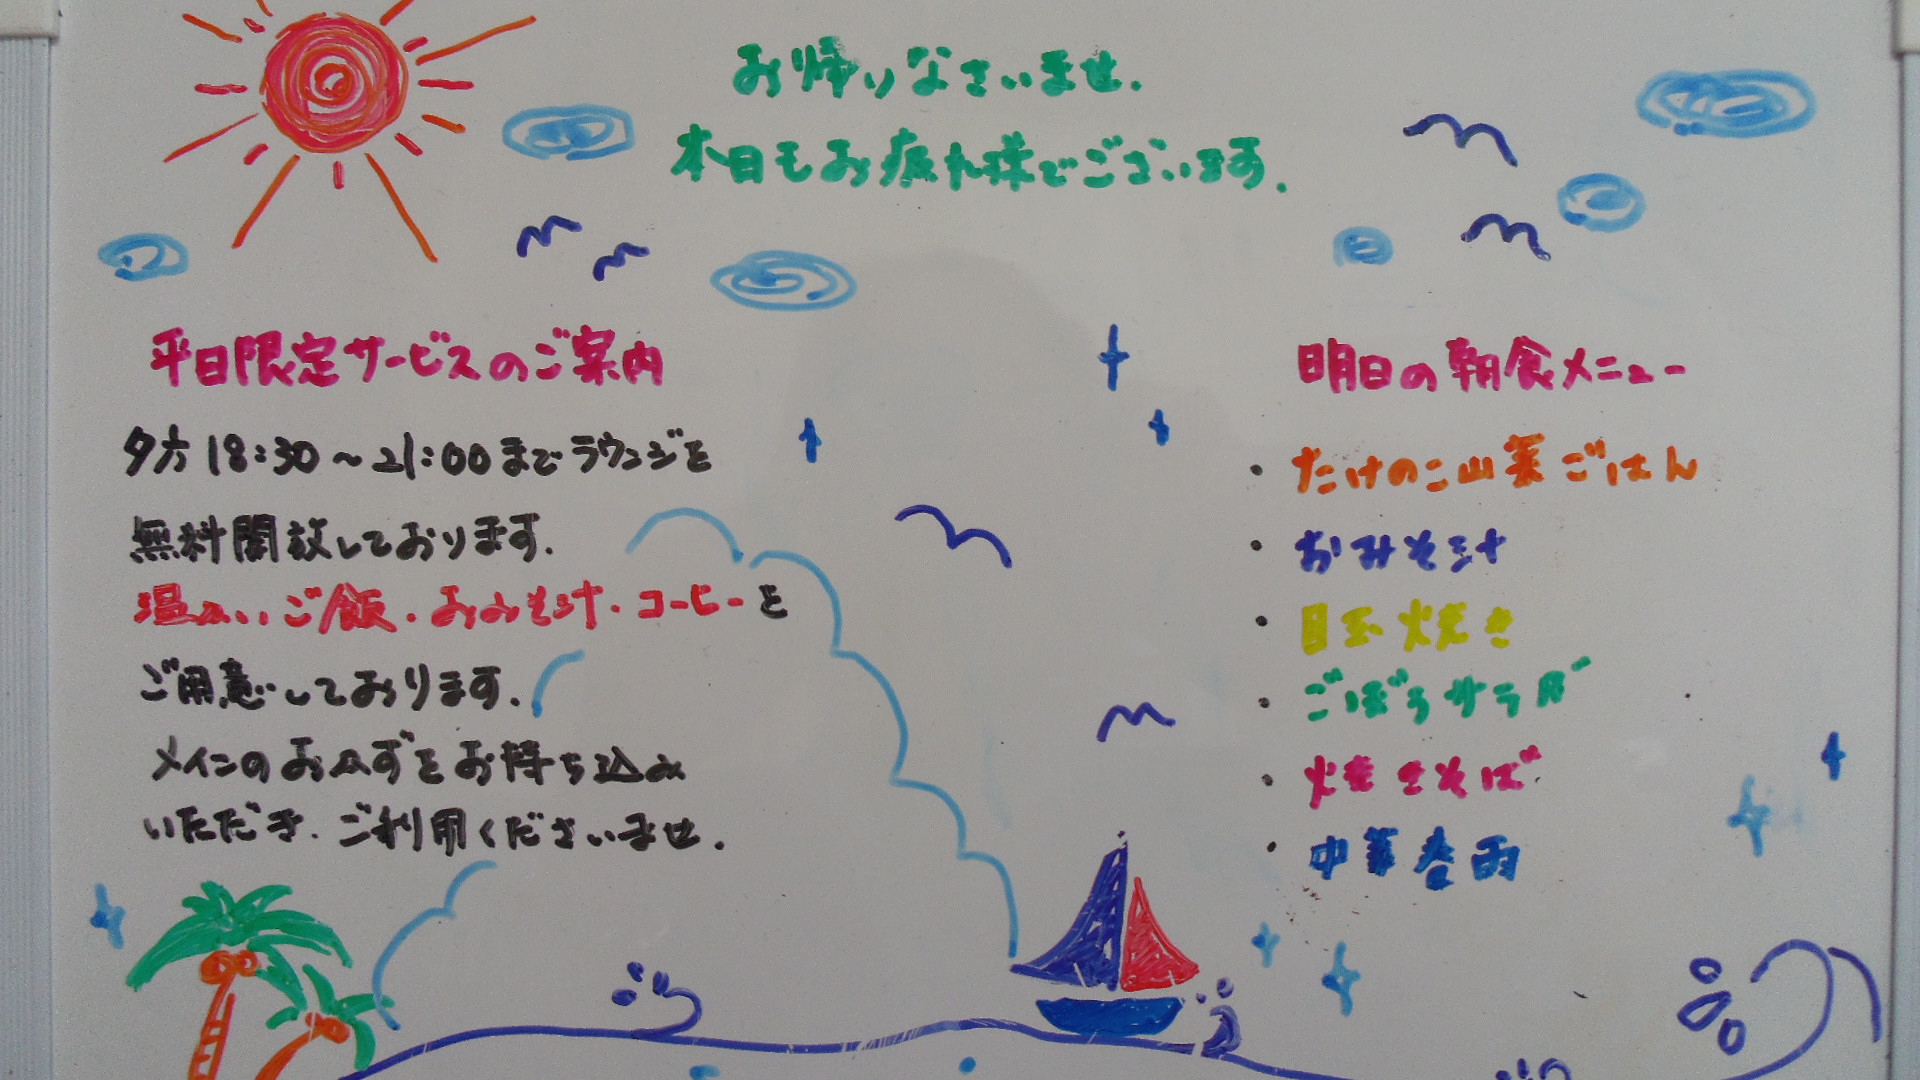 お帰りなさいませ.
本日もお疲れ様でございます.
平日限定サービスのご案内
夕方18:30～21:00までラウンジを
無料開放しております.
温かいご飯・おみそ汁・コーヒーを
ご用意しております.
メインのおかずをお持ち込み
いただき.ご利用くださいませ.
明日の朝食メニュー
・たけのこ山菜ごはん
・おみそ汁
・目玉焼き
・ごぼうサラダ
・焼きそば
・中華春雨